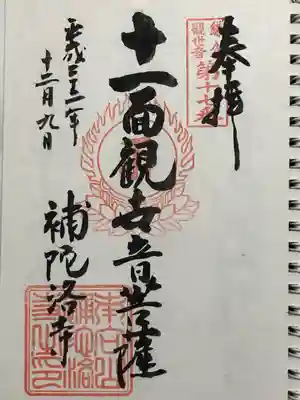 奉拝
観世音
第十七番
十一面観世音菩薩
平成三十一年
十二月九日
補陀洛寺